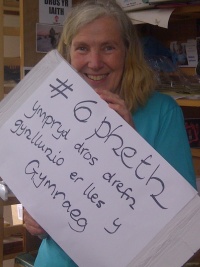 DROS YR
IAITH
# 6 pheth
ympryd dros drefn
gynllunio er lles y
Gymraeg